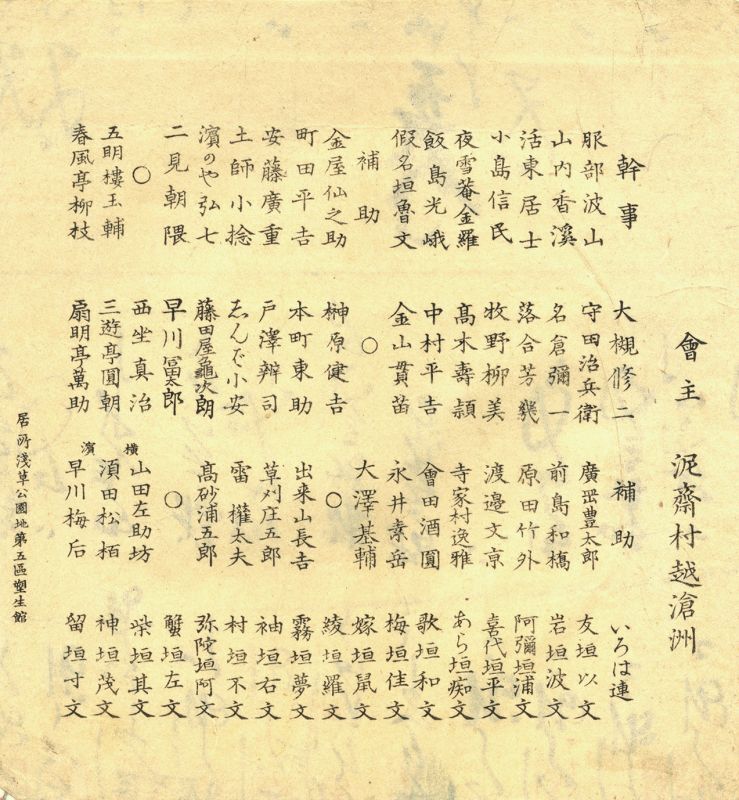 會主 泥齋村越滄洲
幹事
服部波山
山内香溪
活東居士
小島信民
夜雪菴金羅
飯島光峨
假名垣魯文
補助
金屋仙之助
町田平吉
安藤廣重
土師小捻
濱のや弘七
二見朝隈
〇
五明樓玉輔
春風亭柳枝
大槻修二
守田治兵衛
名倉彌一
落合芳幾
牧野柳美
髙木壽頴
中村平吉
金山貫苗
〇
榊原健吉
本町東助
戸澤辨司
志んば小安
藤田屋龜次朗
早川冨太郎
西坐真治
三遊亭圓朝
扇明亭萬助
補助
廣岡豊太郎
前島和橋
原田竹外
渡邉文京
寺家村逸雅
會田酒圓
永井素岳
大澤基輔
〇
出来山長吉
草刈庄五郎
雷權太夫
髙砂浦五郎
〇
横濱
山田左助坊
湏田松栢
早川梅后
いろは連
友垣以文
岩垣波文
阿彌垣浦文
喜代垣平文
あら垣痴文
歌垣和文
梅垣佳文
嫁垣鼠文
綾垣羅文
霧垣夢文
袖垣右文
村垣不文
弥陀垣阿文
蟹垣左文
柴垣其文
神垣茂文
留垣寸文
居所淺草公園地第五區塑生館